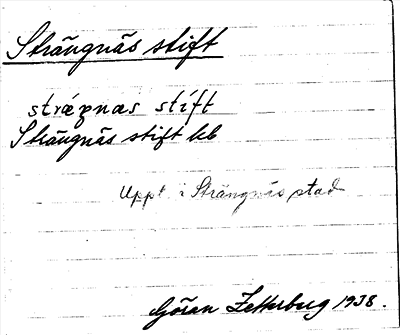 Strängnäs stift
stræŋnas stift
Strängnäs stift kb
Uppt. i Strängnäs stad
Göran Zetterberg 1938.